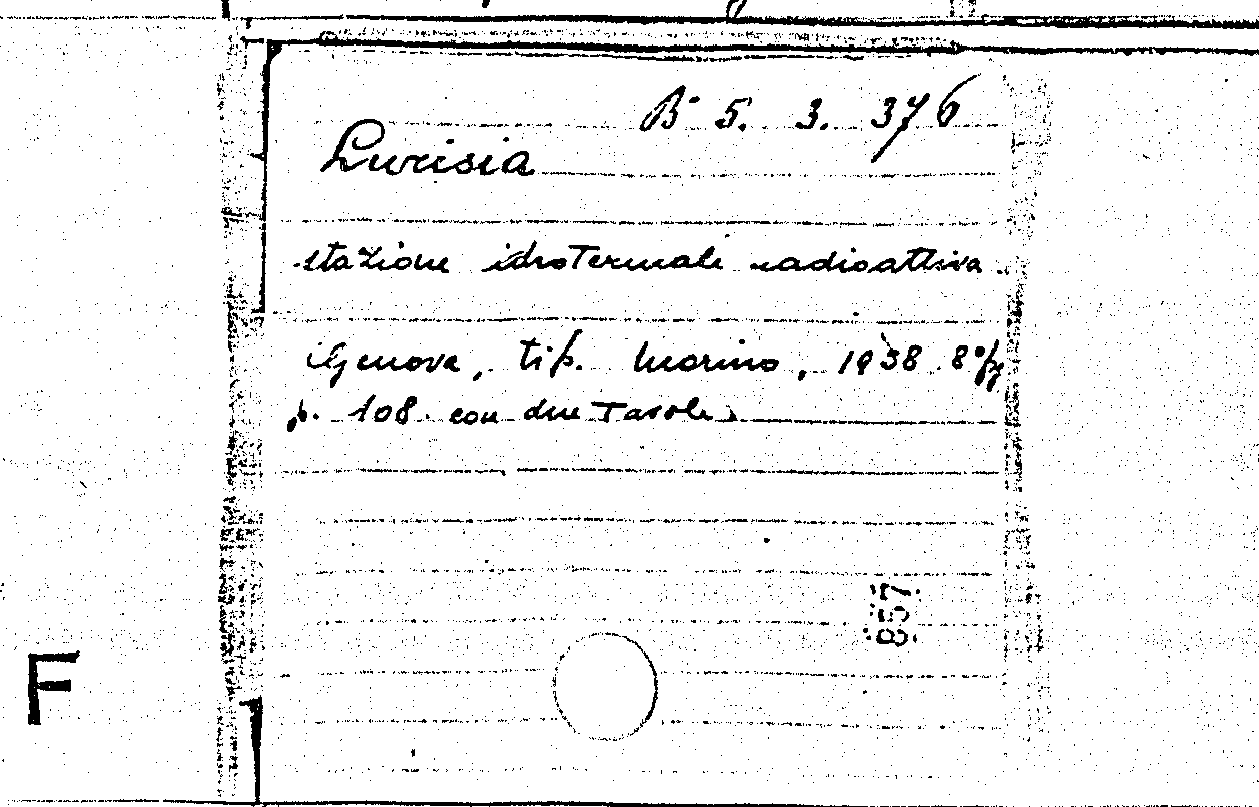 B- 5. 3. 376
Lurisia
stazione idrotermale radioattiva.
Genova, tip. Morino, 1938. 8°fig
p. 108. con due Tavole.
857
F